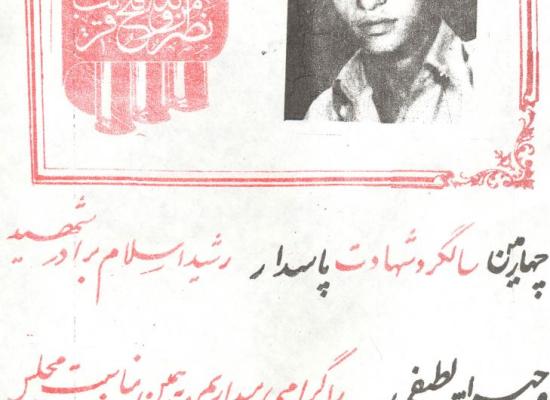 نصر من الله و فتح قریب
چهارمین سالگرد شهادت پاسدار رشید اسلام برادر شهید
لطیفی را گرامی میداریم بهمین مناسبت مجلس